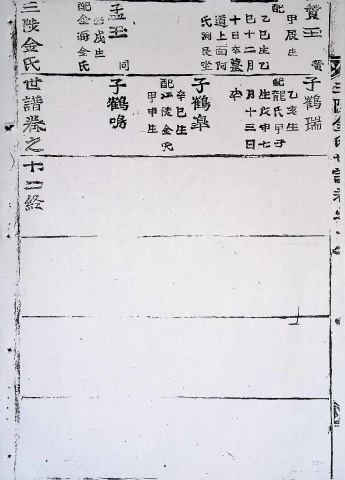 贊玉
甲辰生
配
乙巳生乙
巳十二月
十日卒墓
道上面何
氏洞艮坐
孟玉
同
戌生
配金海金氏
子鶴瑞
乙亥生
配龍氏甲子
生戊申七
月十三日
卒
子鶴皐
辛巳生
配江陵金氏
甲申生
子鶴鳴
三陟金氏世譜卷之十二終